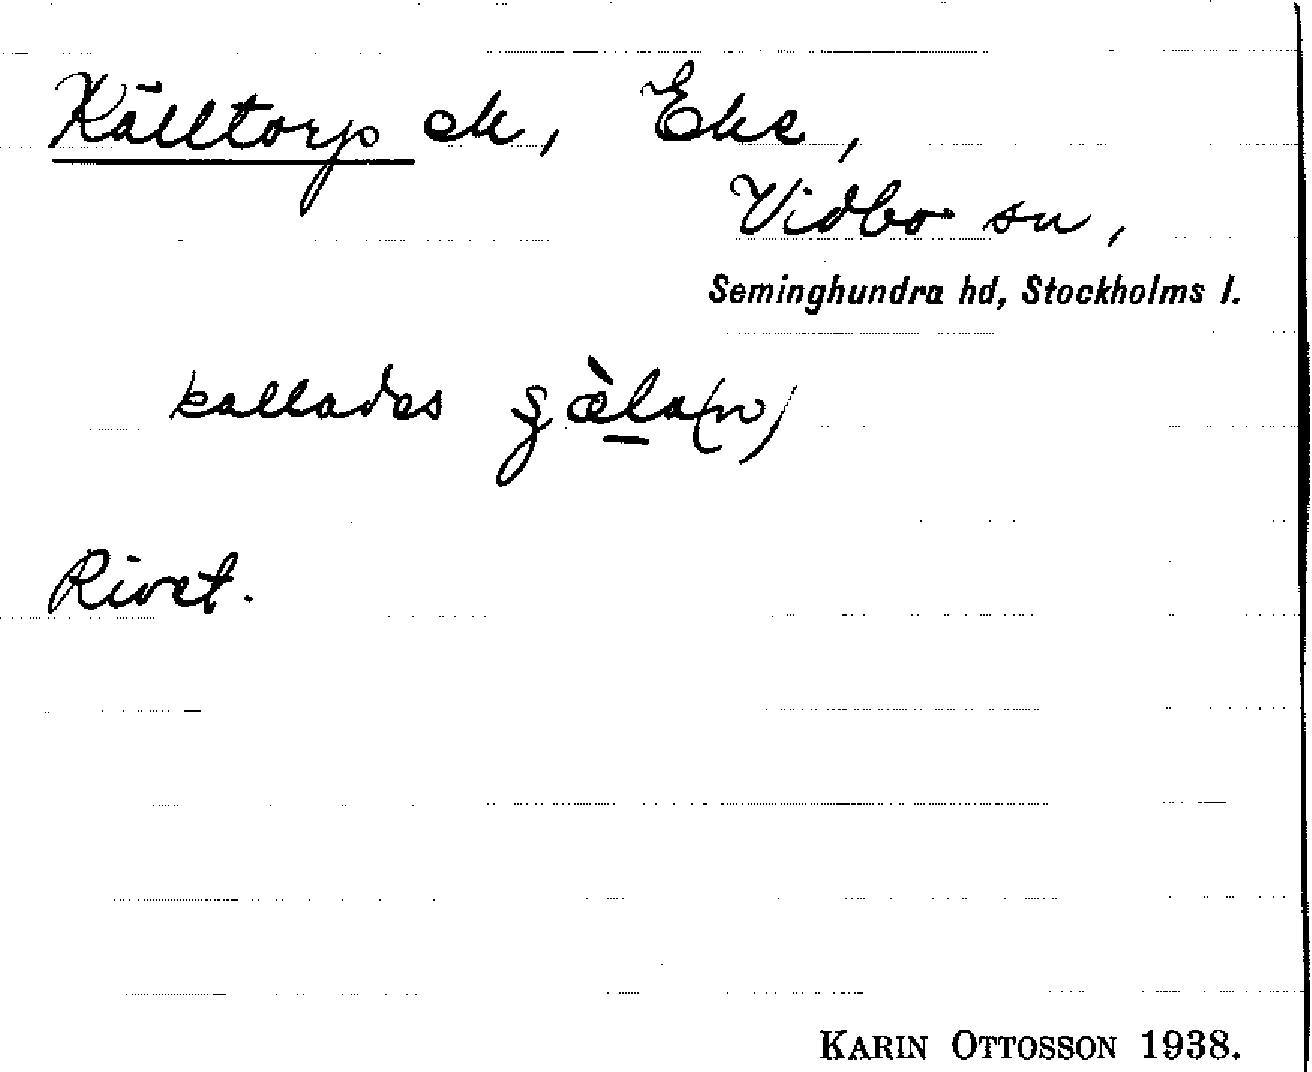 Källtorp ek, Eke,
Vidbo sn,
Seminghundra hd, Stockholms l.
kallades
Rivet.
KARIN OTTOSSON 1938.